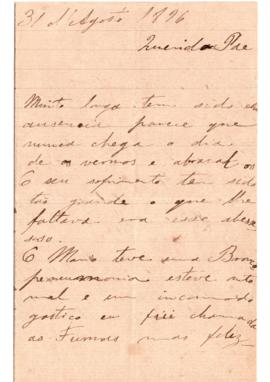 31 d'Agosto 1896
Querido Pae
Muito longa tem sido esta
ausencia parece que
nunca chega o dia
de os vermos e abraçal os
O seu sofrimento tem sido
tão grande o que lhe
faltava era esse
O teve uma Bronco
pneumonia esteve muito
mal e um incommodo
gastrico eu fui chamada
as Furnas mas feliz